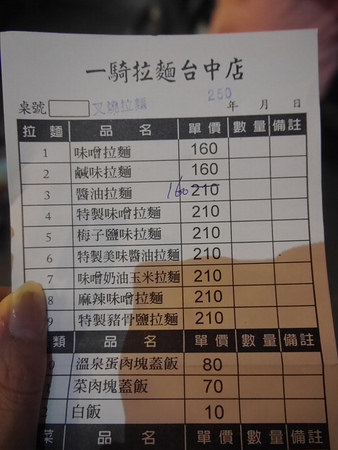 一騎拉麵台中店
桌號 叉燒拉麵 250 年 月 日
拉麵 品名 單價 數量 備註
1 味噌拉麵 160
2 鹹味拉麵 160
3 醬油拉麵 160 210
4 特製味噌拉麵 210
5 梅子鹽味拉麵 210
6 特製美味醬油拉麵 210
7 味噌奶油玉米拉麵 210
8 麻辣味噌拉麵 210
9 特製豬骨鹽拉麵 210
類 品名 單價 數量 備註
溫泉蛋肉塊蓋飯 80
菜肉塊蓋飯 70
白飯 10
品名 單價 數量 備註